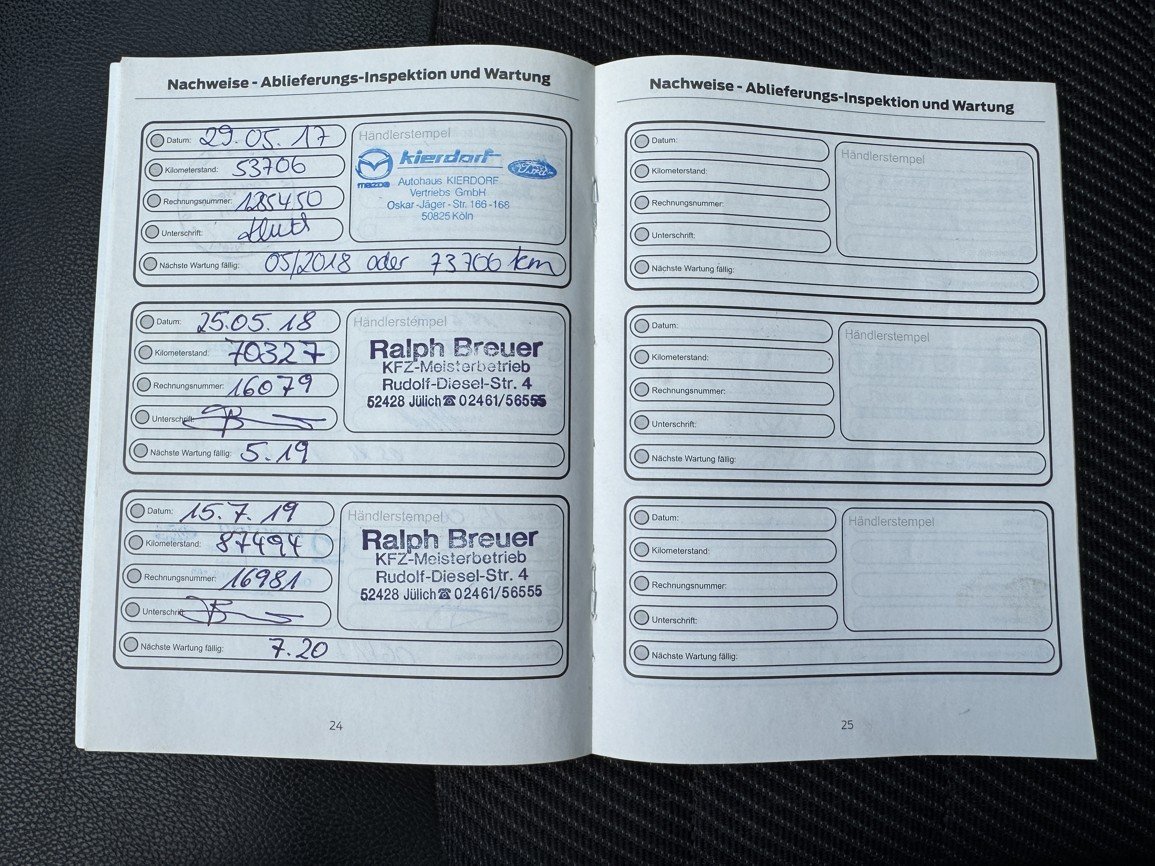 Nachweise - Ablieferungs-Inspektion und Wartung
Datum: 29.05.17
Kilometerstand: 53706
Rechnungsnummer: 185450
Unterschrift:
Nächste Wartung fällig: 05/2018 oder 73706 km
Händlerstempel
kierdorf
mazda
Ford
Autohaus KIERDORF
Vertriebs GmbH
Oskar-Jäger-Str. 166-168
50825 Köln
Datum: 25.05.18
Kilometerstand: 70327
Rechnungsnummer: 16079
Unterschrift:
Nächste Wartung fällig: 5.19
Händlerstempel
Ralph Breuer
KFZ-Meisterbetrieb
Rudolf-Diesel-Str. 4
52428 Jülich ☎ 02461/56555
Datum: 15.7.19
Kilometerstand: 87494
Rechnungsnummer: 16981
Unterschrift:
Nächste Wartung fällig: 7.20
Händlerstempel
Ralph Breuer
KFZ-Meisterbetrieb
Rudolf-Diesel-Str. 4
52428 Jülich ☎ 02461/56555
24
Nachweise - Ablieferungs-Inspektion und Wartung
Datum:
Kilometerstand:
Rechnungsnummer:
Unterschrift:
Nächste Wartung fällig:
Händlerstempel
Datum:
Kilometerstand:
Rechnungsnummer:
Unterschrift:
Nächste Wartung fällig:
Händlerstempel
Datum:
Kilometerstand:
Rechnungsnummer:
Unterschrift:
Nächste Wartung fällig:
Händlerstempel
25